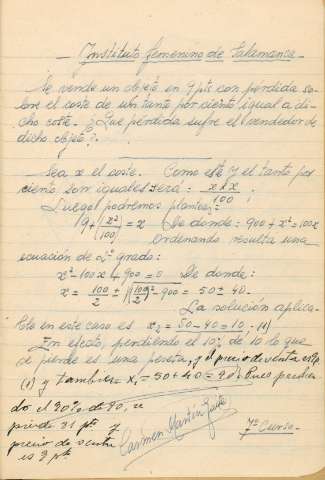 - Instituto Femenino de Salamanca -
Se vende un objeto en 9 pts con pérdida so-
bre el coste de un tanto por ciento igual a di-
cho coste. ¿Que pérdida sufre el vendedor de
dicho objeto?.
Sea x el coste. Como este y el tanto por
ciento son iguales será = x·x/100 ;
Luego podremos plantear:
9 + (x²/100) = x De donde: 900 + x² = 100x
ordenando resulta una
ecuación de 2º grado:
x² - 100x + 900 = 0 De donde:
x = 100/2 ± √(100/2)² - 900 = 50 ± 40.
La solución aplica-
ble en este caso es x₂ = 50 - 40 = 10, (1)
En efecto, perdiendo el 10% de 10 lo que
se pierde es una peseta, y el precio de venta es 9 p
(1) y tambien x₁ = 50 + 40 = 90. Pues perdien
do el 90% de 90, se
pierde 81 pts y
precio de venta
es 9 pt
Carmen Martín Gaite
7º Curso -